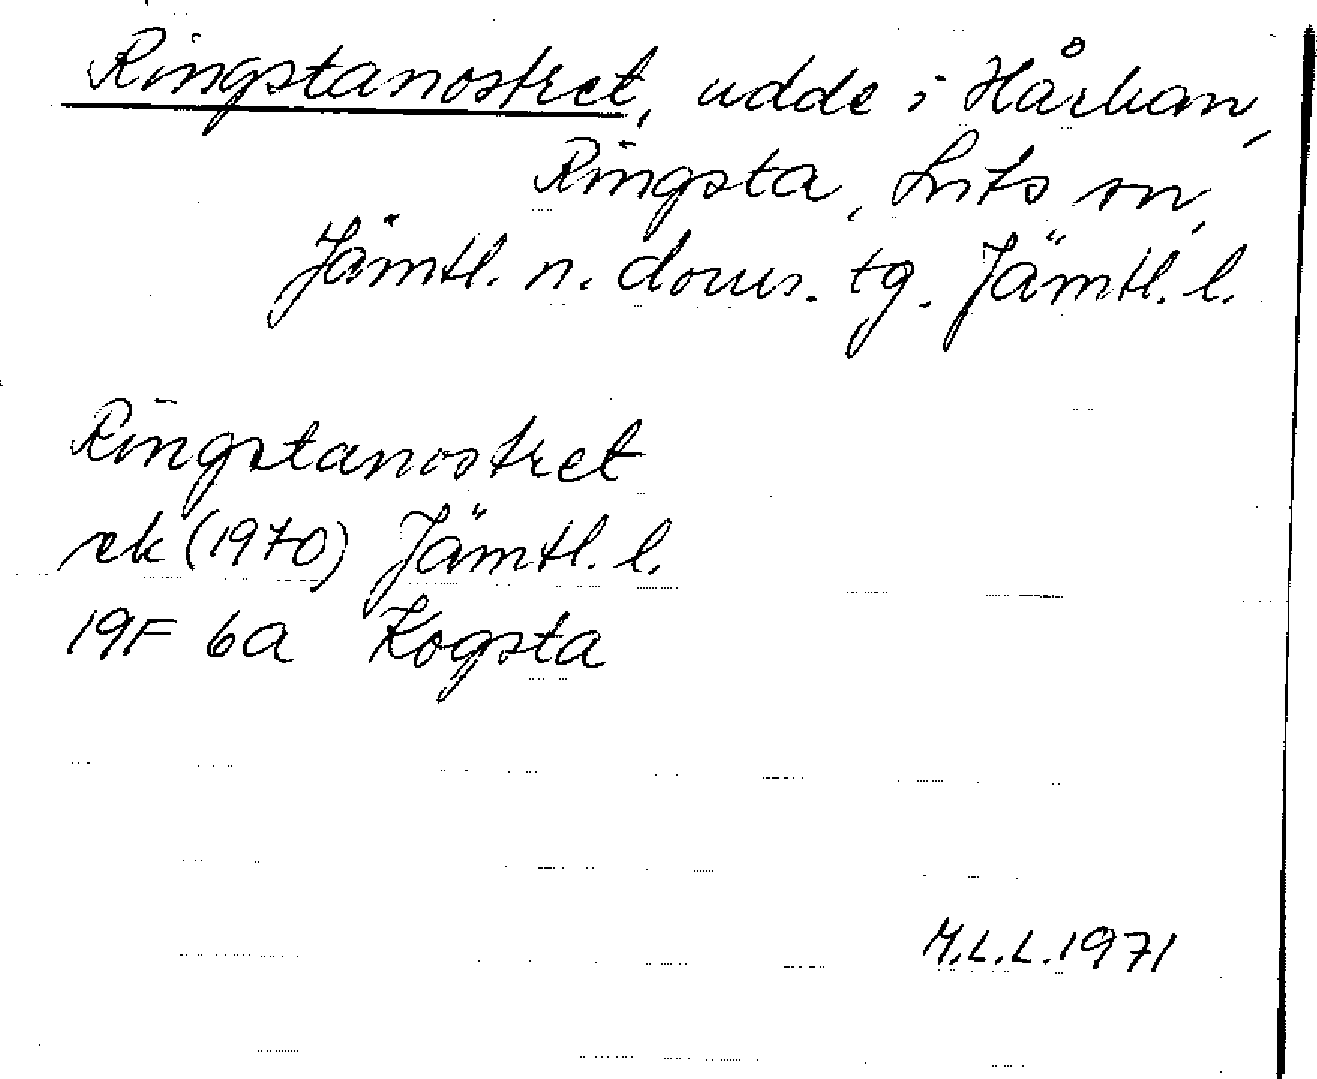 Ringstanostret, udde i Hårkan,
Ringsta, Lits sn,
Jämtl. n. doms. tg. Jämtl. l.
Ringstanostret
ek (1970) Jämtl. l.
19F 6a Kogsta
M.L.L. 1971